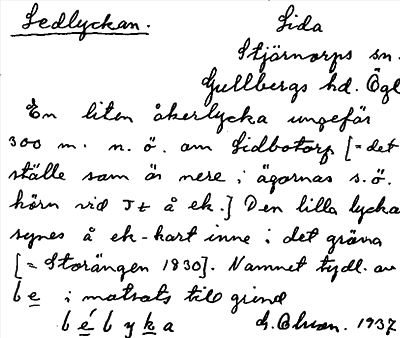 Ledlyckan. Lida
Stjärnorps sn.
Gullbergs hd. Ögl
En liten åkerlycka ungefär
300 m. n. ö. om Lidbotorp [= det
ställe som är nere i ägornas s. ö.
hörn vid Jt å ek.] Den lilla lycka
synes å ek-kart inne i det gröna
[= Storängen 1830]. Namnet tydl. av
le i motsats till grind
lélyka 1937